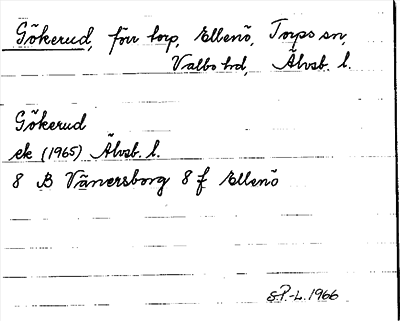 Gökerud, förr torp, Ellenö, Torps sn,
Valbo hd, Älvsb. l.
Gökerud
ek (1965) Älvsb. l.
8 B Vänersborg 8 f Ellenö
S.P.-L. 1966